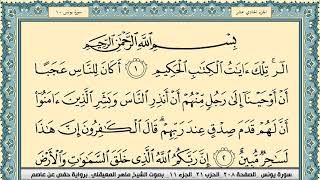 الجزء الحادي عشر
سورة يونس ١٠
بِسْمِ اللَّهِ الرَّحْمَٰنِ الرَّحِيمِ
الٓر ۚ تِلْكَ ءَايَٰتُ الْكِتَٰبِ الْحَكِيمِ ١ أَكَانَ لِلنَّاسِ عَجَبًا
أَنْ أَوْحَيْنَآ إِلَىٰ رَجُلٍ مِّنْهُمْ أَنْ أَنذِرِ النَّاسَ وَبَشِّرِ الَّذِينَ ءَامَنُوٓا۟
أَنَّ لَهُمْ قَدَمَ صِدْقٍ عِندَ رَبِّهِمْ ۗ قَالَ الْكَٰفِرُونَ إِنَّ هَٰذَا
لَسَٰحِرٌ مُّبِينٌ ٢ إِنَّ رَبَّكُمُ اللَّهُ الَّذِى خَلَقَ السَّمَٰوَٰتِ وَالْأَرْضَ
سورة يونس الصفحة ٢٠٨ الحزب ٢١ الجزء ١١ بصوت الشيخ ماهر المعيقلي برواية حفص عن عاصم